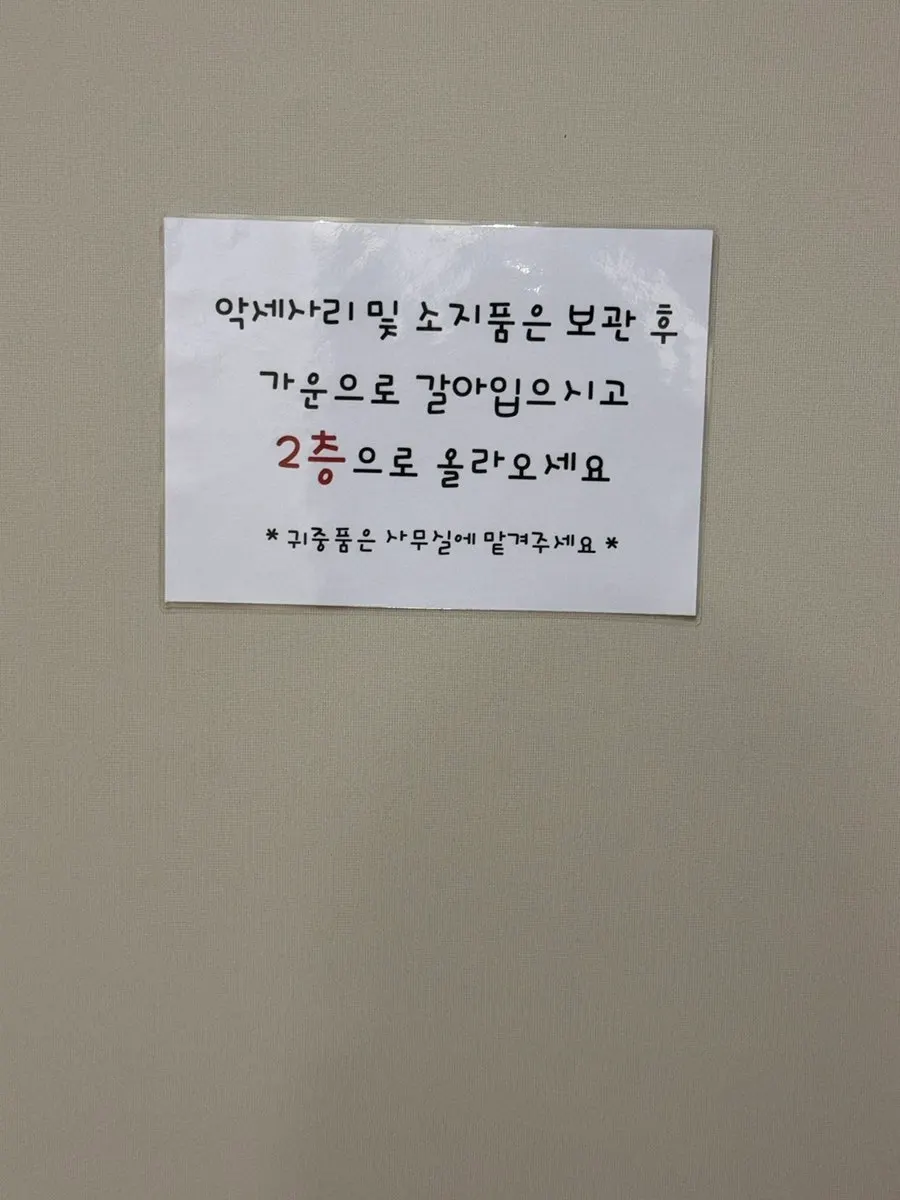 악세사리 및 소지품은 보관 후
가운으로 갈아입으시고
2층으로 올라오세요
* 귀중품은 사무실에 맡겨주세요 *